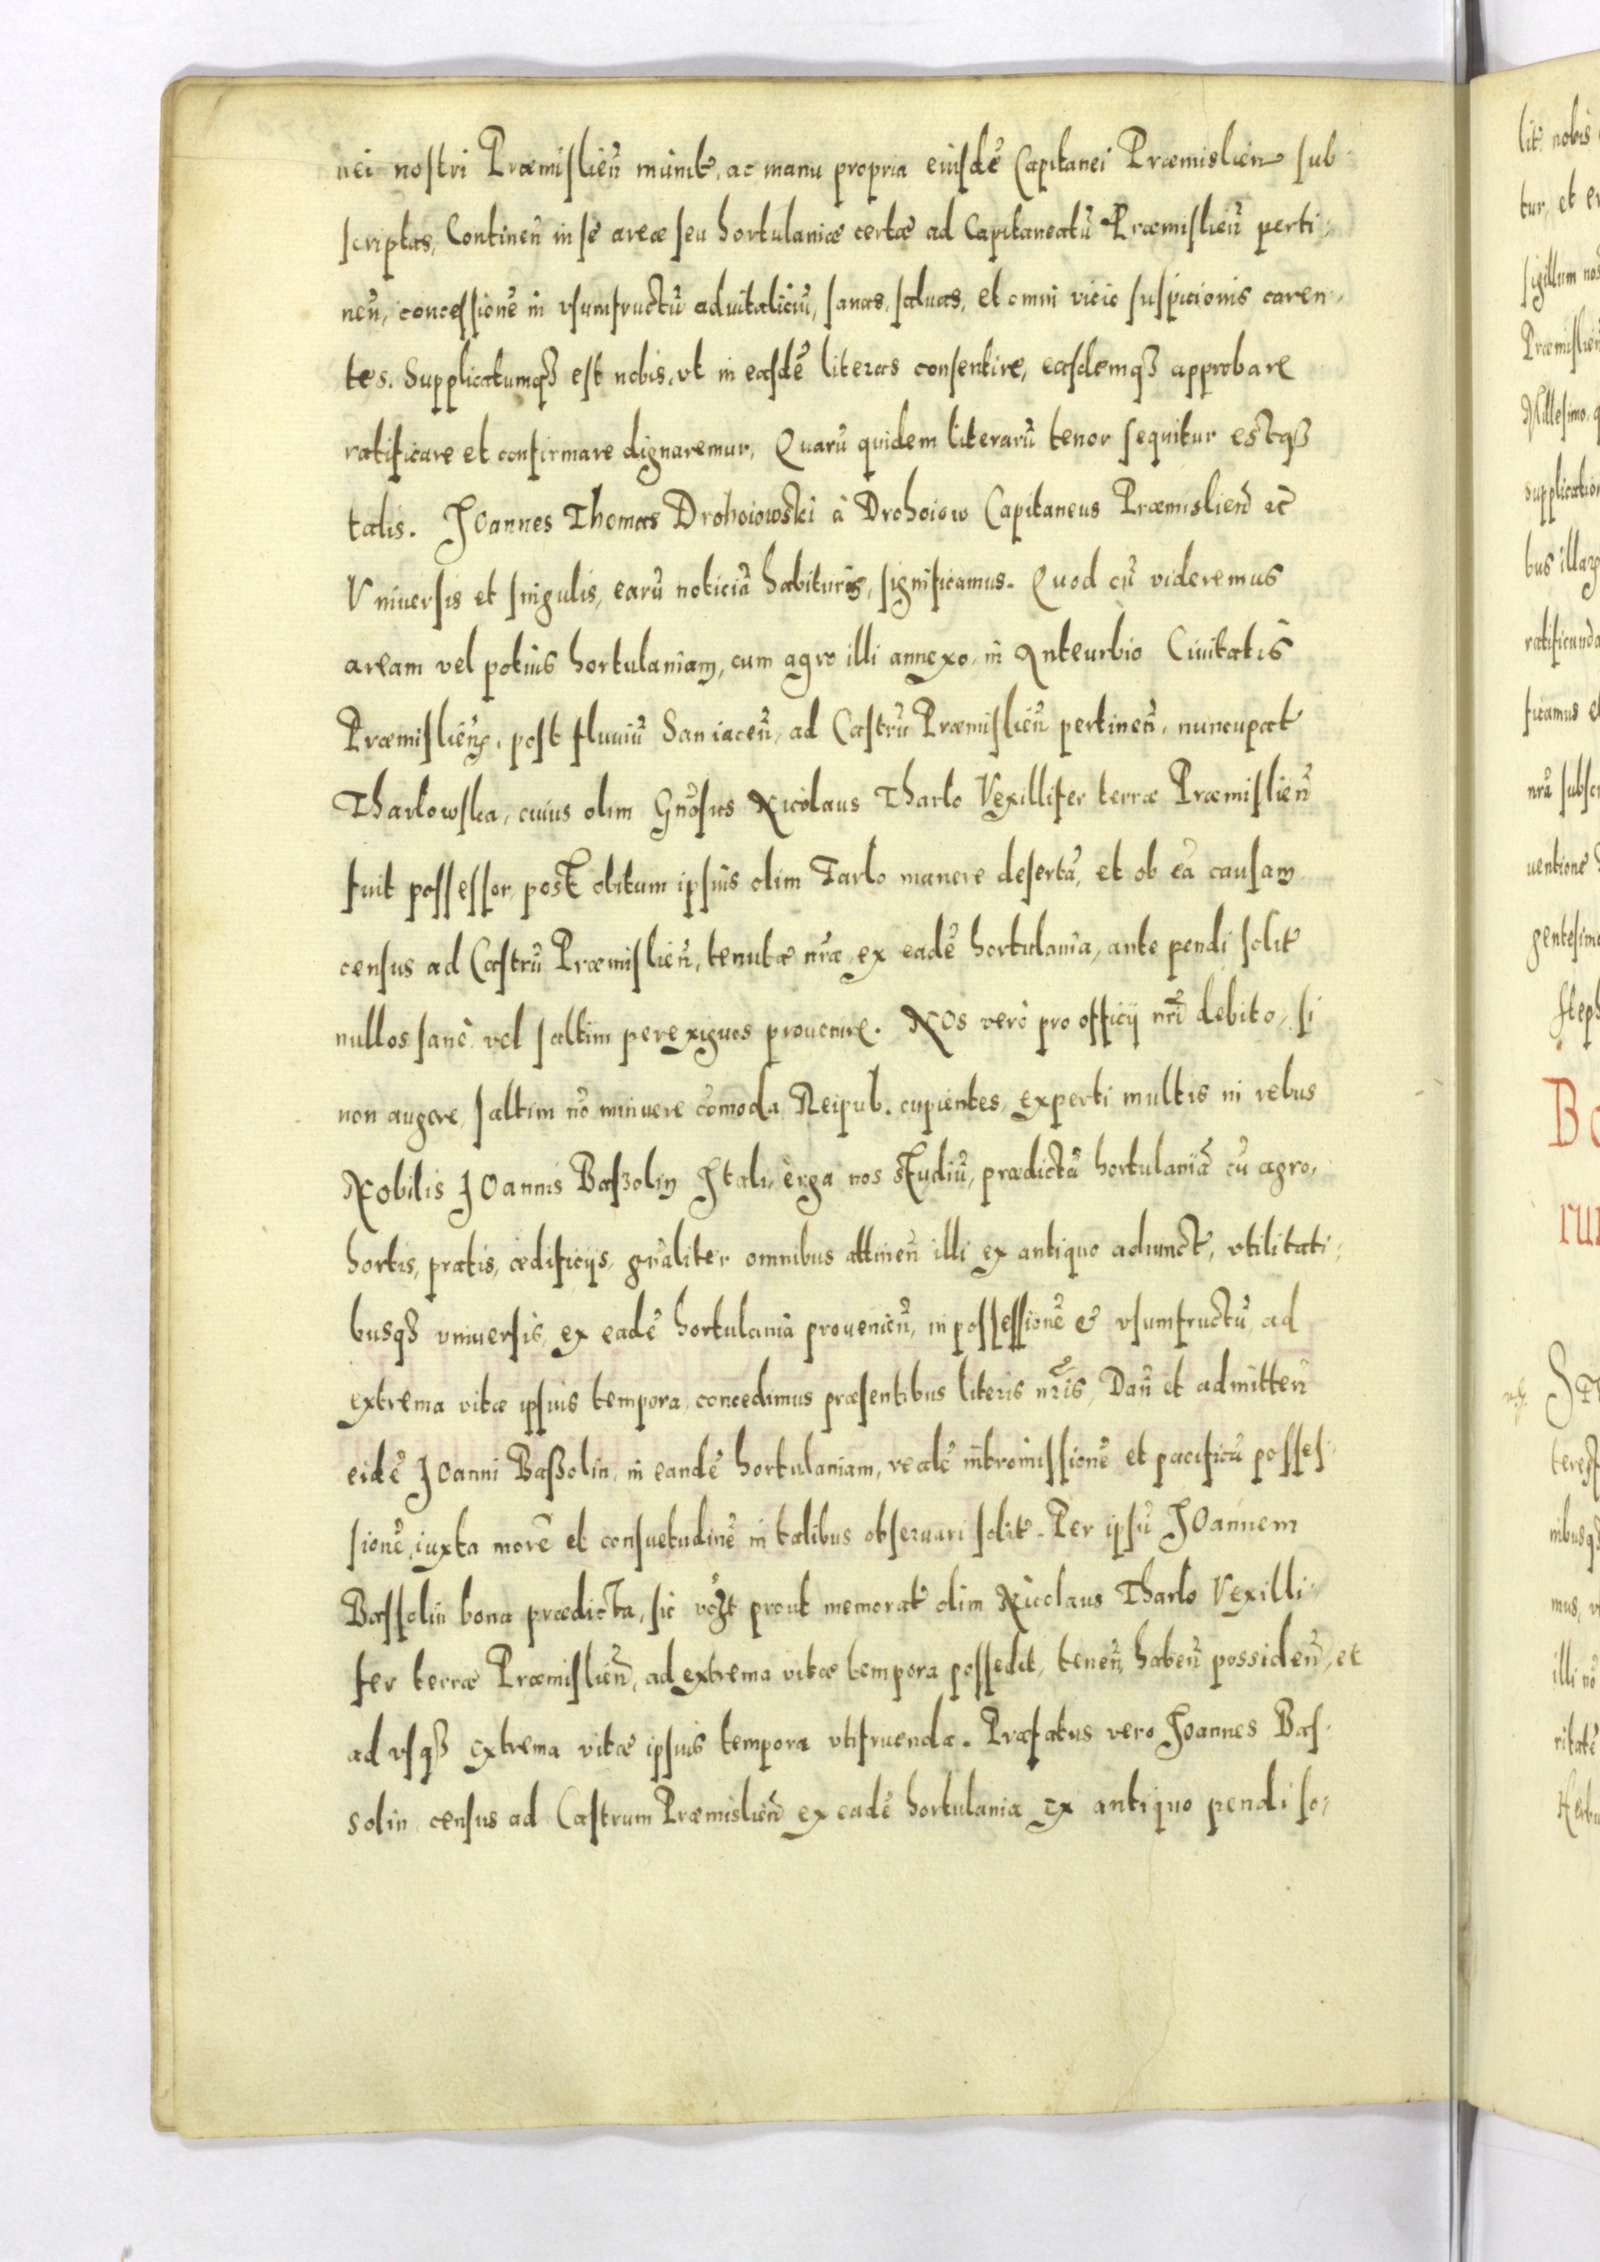 nei nostri Præmislieñ munit, ac manu propria eiusdẽ Capitanei Præmislieñ sub-
scriptas, Contineñ in se areæ seu hortulaniæ certæ ad Capitaneatũ Præmislieñ perti-
neñ, concessionẽ in vsumfructũ aduitaliciũ, sanas, saluas, et omni vicio suspicionis caren-
tes. Supplicatumqȝ est nobis, vt in easdẽ literas consentire, easdemqȝ approbare
ratificare et confirmare dignaremur, Quarũ quidem literarũ tenor sequitur estqȝ
talis. Joannes Thomas Drohoiowski à Drohoiow Capitaneus Præmislieñ etc̃
Vniuersis et singulis, earũ noticiã habituris, significamus. Quod cũ videremus
aream vel potius hortulaniam, cum agro illi annexo, in Anteurbio Ciuitatis
Præmislieñ, post fluuiũ San iaceñ, ad Castrũ Præmislieñ pertineñ, nuncupat
Tharlowska, cuius olim Gñosus Nicolaus Tharlo Vexillifer terræ Præmislieñ
fuit possessor, post obitum ipsius olim Tarlo manere desertã, et ob eã causam
census ad Castrũ Præmislieñ, tenutæ nr̃æ, ex eadẽ hortulania, ante pendi solit
nullos sanè vel saltim perexiguos prouenire. Nos verò pro officij nr̃i debito, si
non augere, saltim nõ minuere cõmoda Reipub. cupientes, experti multis in rebus
Nobilis Joannis Baßolin Itali, erga nos studiũ, prædictã hortulaniã cũ agro,
hortis, pratis, ædificijs, gñaliter omnibus attineñ illi ex antiquo adiunct, vtilitati-
busqȝ vniuersis, ex eadẽ hortulania prouenieñ, in possessionẽ & vsumfructũ, ad
extrema vitæ ipsius tempora, concedimus præsentibus literis nr̃is, Dañ et admitteñ
eidẽ Joanni Baßolin, in eandẽ hortulaniam, realẽ intromissionẽ et pacificũ posses-
sionẽ, iuxta morẽ et consuetudinẽ in talibus obseruari solit. Per ipsũ Joannem
Bassolin bona prædicta, sic prout memorat olim Nicolaus Tharlo Vexilli-
fer terræ Præmislieñ, ad extrema vitæ tempora possedit, teneñ, habeñ possideñ, et
ad vsqȝ extrema vitæ ipsius tempora vtifruenda. Præfatus vero Joannes Bas-
solin census ad Castrum Præmislieñ ex eadẽ hortulania ex antiquo pendi so-